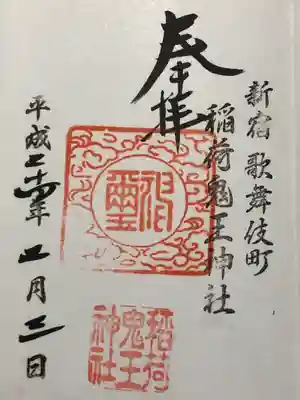 新宿歌舞伎町
稲荷鬼王神社
奉拝
平成二十四年四月三日
稲荷
鬼王
神社